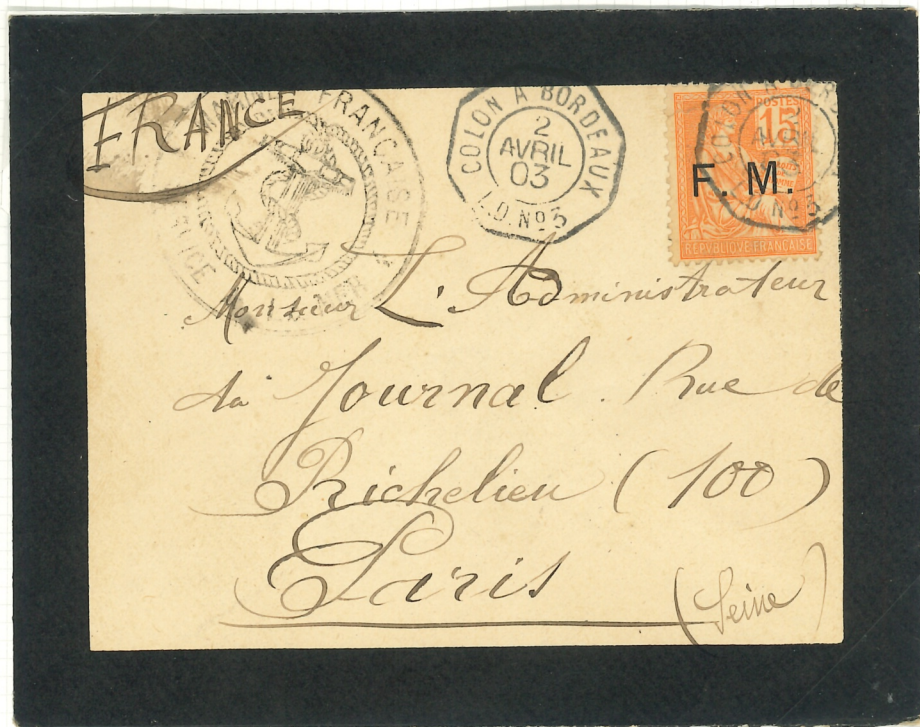 FRANCE
FRANÇAISE
COLON A BORDEAUX
2
AVRIL
03
L.D.Nº3
POSTES
15
F. M.
REPVBLIQVE FRANÇAISE
COLON
L.D Nº3
Monsieur L'Administrateur
du Journal. Rue de
Richelieu (100)
Paris
(Seine)